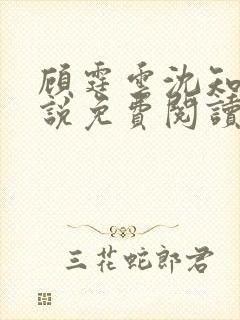 顾霆雲沈知
說免費閱讀
三花蛇郎君